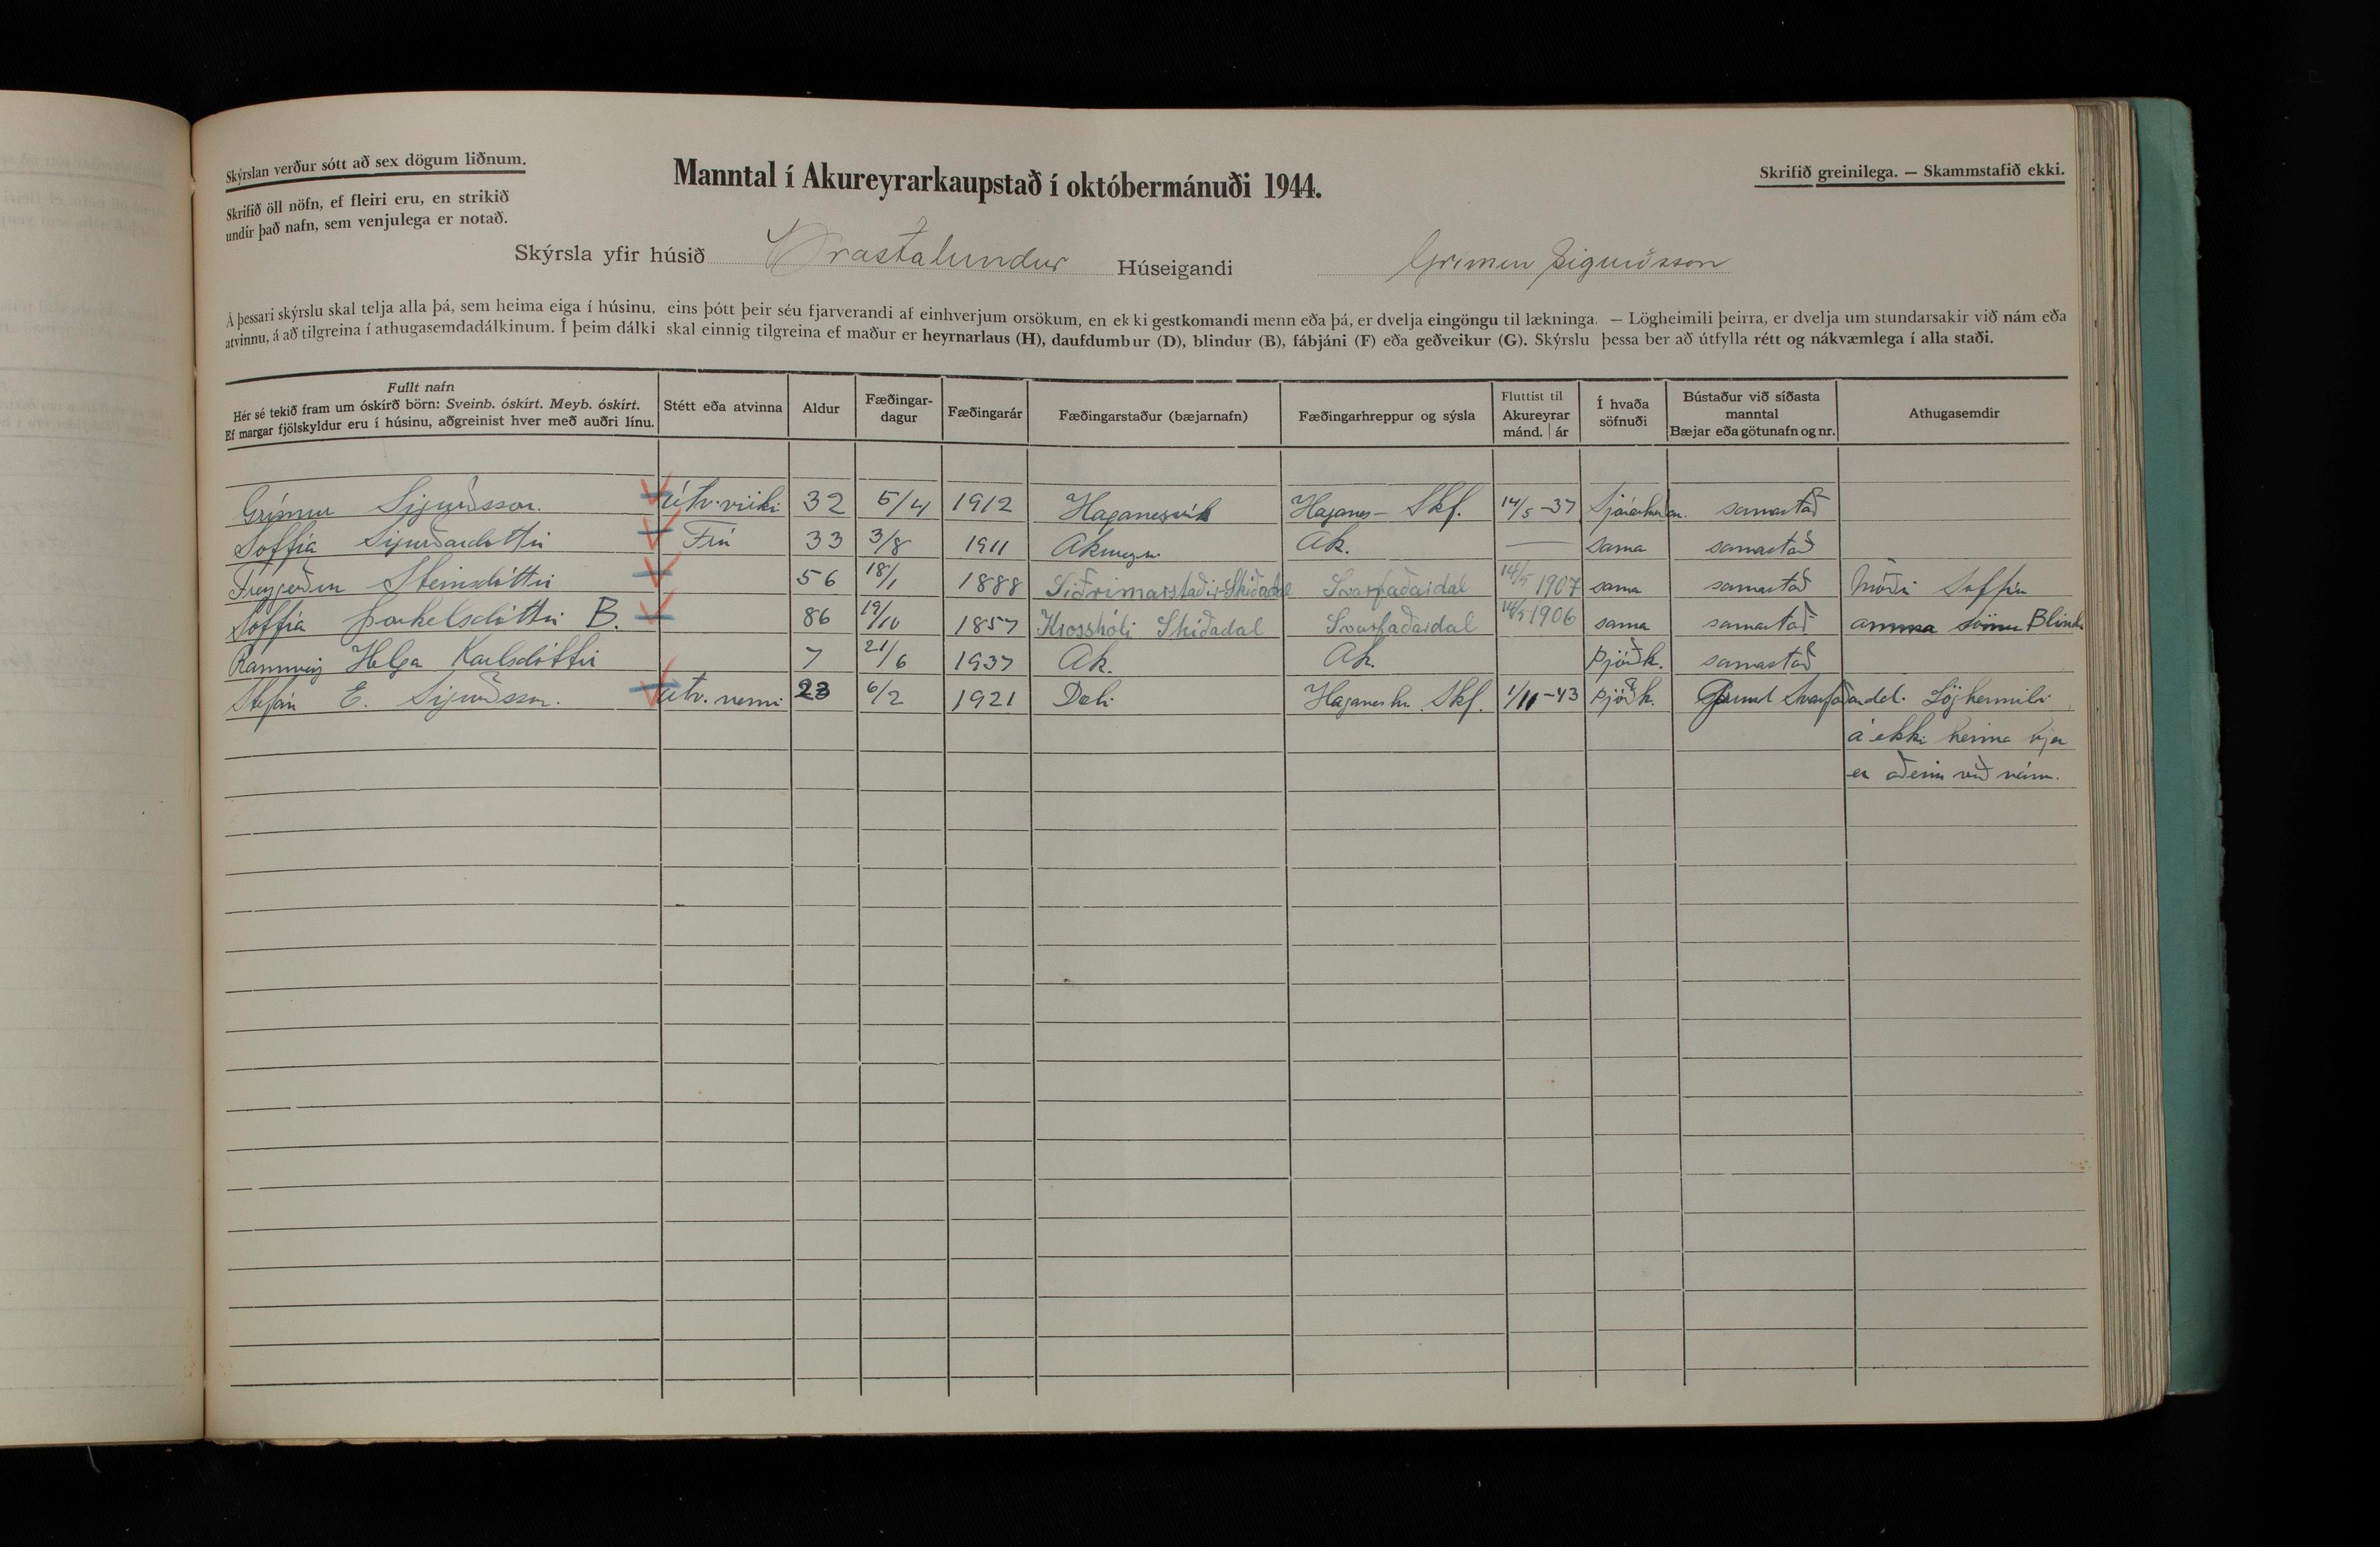 Skýrslan verður sótt að sex dögum liðnum.
Manntal í Akureyrarkaupstað í októbermánuði 1944.
Skrifið greinilega. — Skammstafið ekki.
Skrifið öll nöfn, ef fleiri eru, en strikið
undir það nafn, sem venjulega er notað.
Skýrsla yfir húsið Þrastalundur Húseigandi Grímur Sigurðsson
Á þessari skýrslu skal telja alla þá, sem heima eiga í húsinu, eins þótt þeir séu fjarverandi af einhverjum orsökum, en ekki gestkomandi menn eða þá, er dvelja eingöngu til lækninga. — Lögheimili þeirra, er dvelja um stundarsakir við nám eða
atvinnu, á að tilgreina í athugasemdadálkinum. Í þeim dálki skal einnig tilgreina ef maður er heyrnarlaus (H), daufdumbur (D), blindur (B), fábjáni (F) eða geðveikur (G). Skýrslu þessa ber að útfylla rétt og nákvæmlega í alla staði.
Fullt nafn
Hér sé tekið fram um óskírð börn: Sveinb. óskírt. Meyb. óskírt.
Ef margar fjölskyldur eru í húsinu, aðgreinist hver með auðri línu.
Stétt eða atvinna
Aldur
Fæðingar-
dagur
Fæðingarár
Fæðingarstaður (bæjarnafn)
Fæðingarhreppur og sýsla
Fluttist til
Akureyrar
mánd. | ár
Í hvaða
söfnuði
Bústaður við síðasta
manntal
Bæjar eða götunafn og nr.
Athugasemdir
Grímur Sigurðsson. útv.virki 32 5/4 1912 Haganesvík Haganes- Skf. 14/5-37 samastað
Soffía Sigurðardóttir Frú 33 3/8 1911 Ak. — sama samastað
Freygerður Steinsdóttir 56 18/1 1888 Skíðadal Svarfaðardal 14/5 1907 sama samastað móðir Soffíu
Soffía Þorkelsdóttir B. 86 19/10 1857 Krosshóli Skíðadal Svarfaðardal 14/5 1906 sama samastað amma sömu Blind
Rannveig Helga Karlsdóttir 7 21/6 1937 Ak. Ak. Þjóðk. samastað
Stefán E. Sigurðsson. útv. nemi 23 6/2 1921 Haganeshr. Skf. 1/11-43 Þjóðk. Grund Svarfaðardal. Lögheimili
á ekki heima hjer
er aðeins við nám.